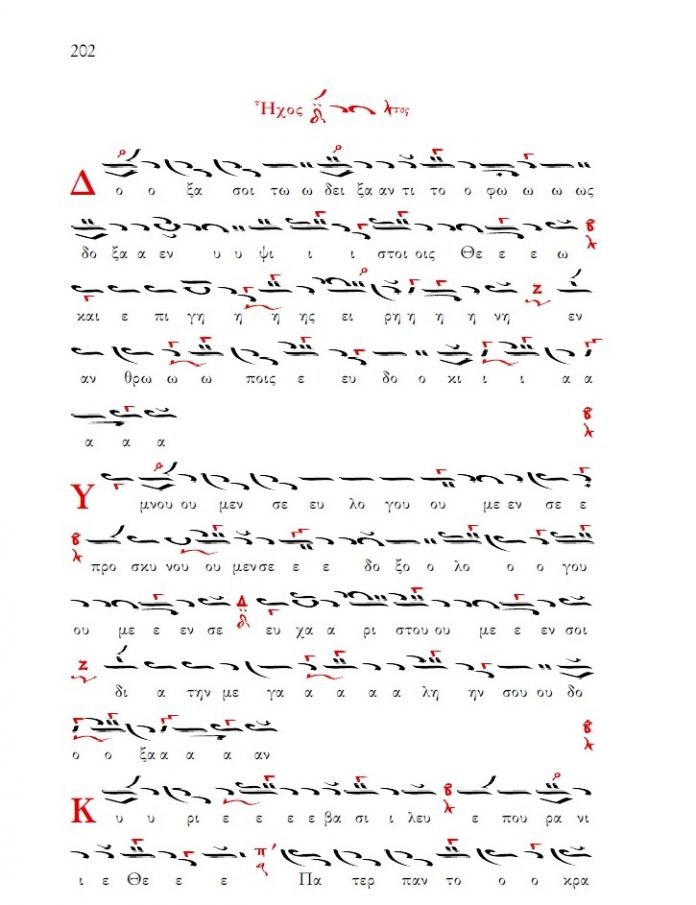 202
Ἦχος λτος
Δ ο ο ξα σοι τω ω δει ξα αν τι το ο φω ω ω ως
δο ξα α εν υ υ ψι ι ι στοι οις Θε ε ε ω
και ε πι γη η ης ει ρη η η νη εν
αν θρω ω ω ποις ε ευ δο ο κι ι ι α α
α α α
Υ μνου ου μεν σε ευ λο γου ου με εν σε ε
προ σκυ νου ου μεν σε ε ε δο ξο ο λο ο ο γου
ου με ε εν σε ευ χα α ρι στου ου με ε εν σοι
δι α την με γα α α α α λη ην σου ου δο
ο ο ξα α α α αν
Κ υ υ ρι ε ε ε ε βα σι ι λευ ε που ρα νι
ι ε Θε ε ε Πα τερ παν το ο ο κρα